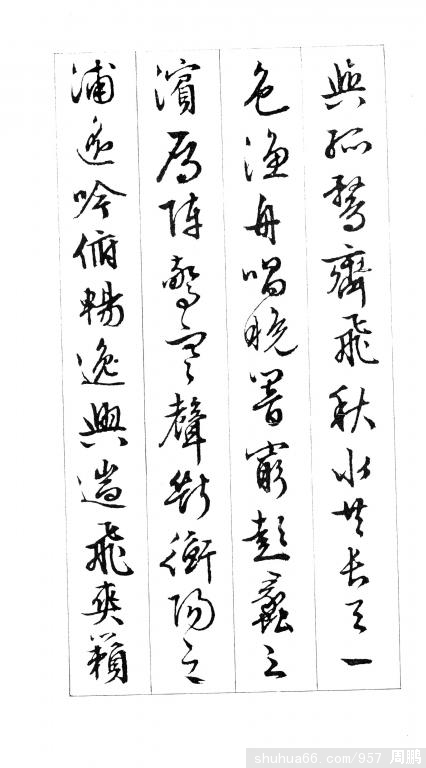 與孤鶩齊飛秋水共長天一
色漁舟唱晚響窮彭蠡之
濱雁陣驚寒聲斷衡陽之
浦遙吟俯暢逸興遄飛爽籟
shuhua66.com/957 周鹏